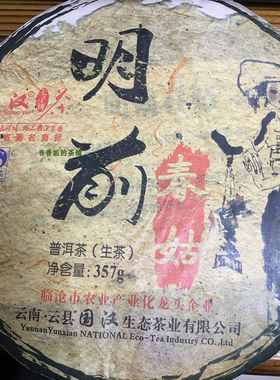 汉
茶
明前
春姑
香香姐的茶铺
普洱茶（生茶）
净含量：357g
临沧市农业产业化龙头企业
云南·云县国汉生态茶业有限公司
YunnanYunxian NATIONAL Eco-Tea Industry CO.,Ltd